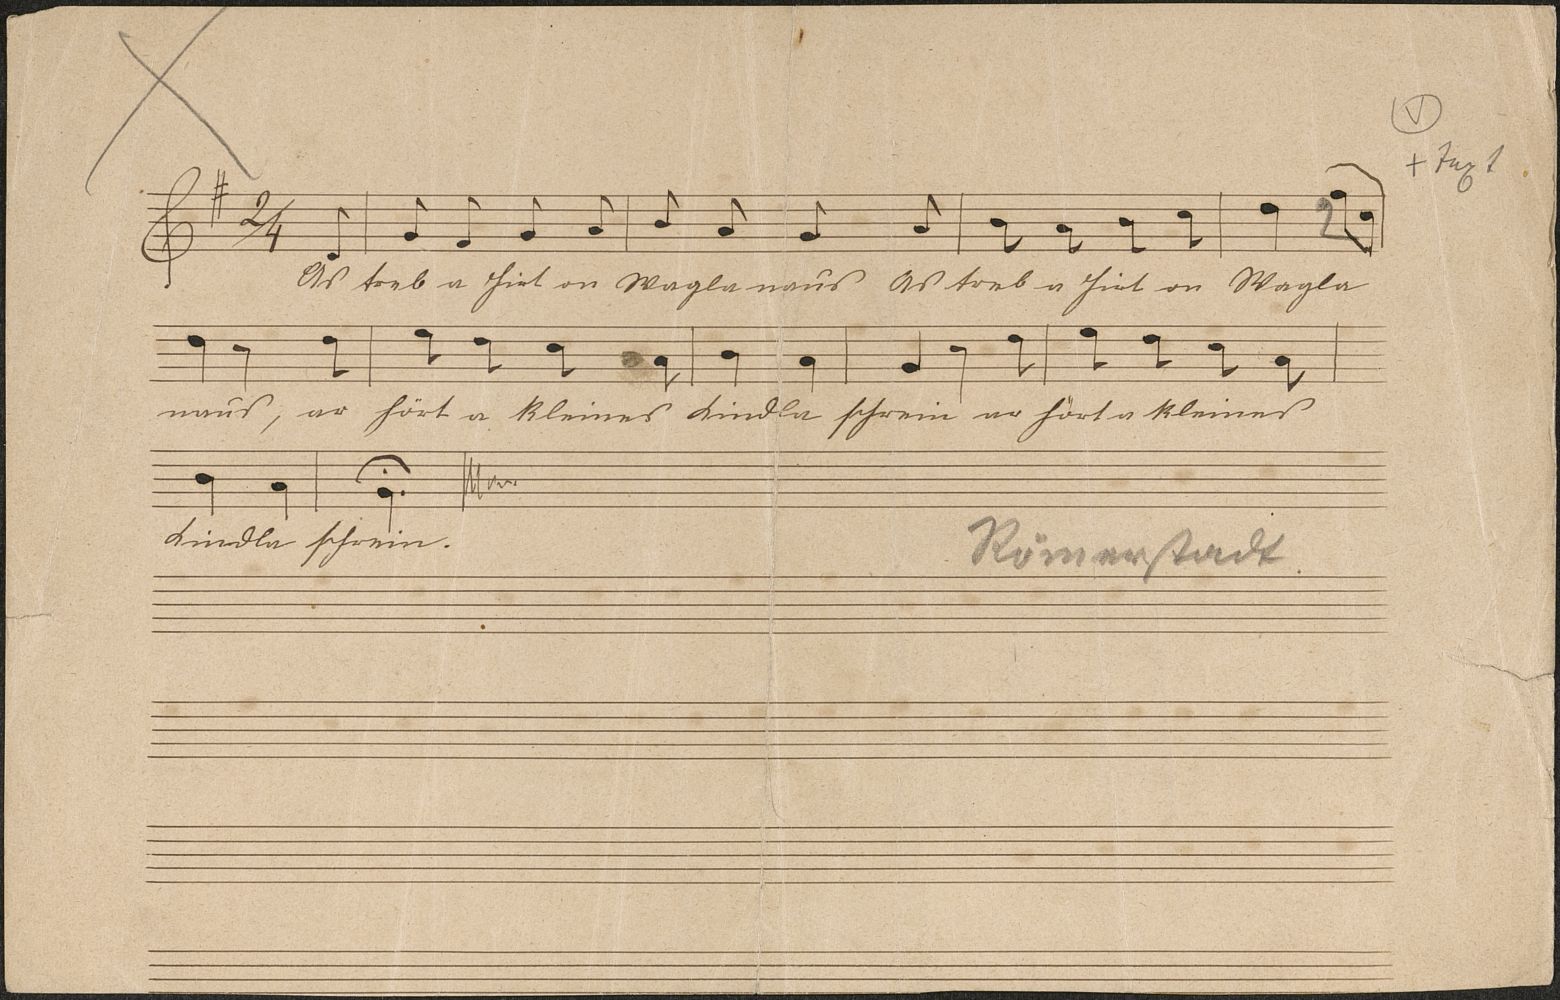 V
+ Text
2/4
As treb a Hirt on Wagla naus As treb a Hirt on Wagla
naus, ar hört a kleines Kindla schrein ar hört a kleines
Kindla schrein.
Römerstadt